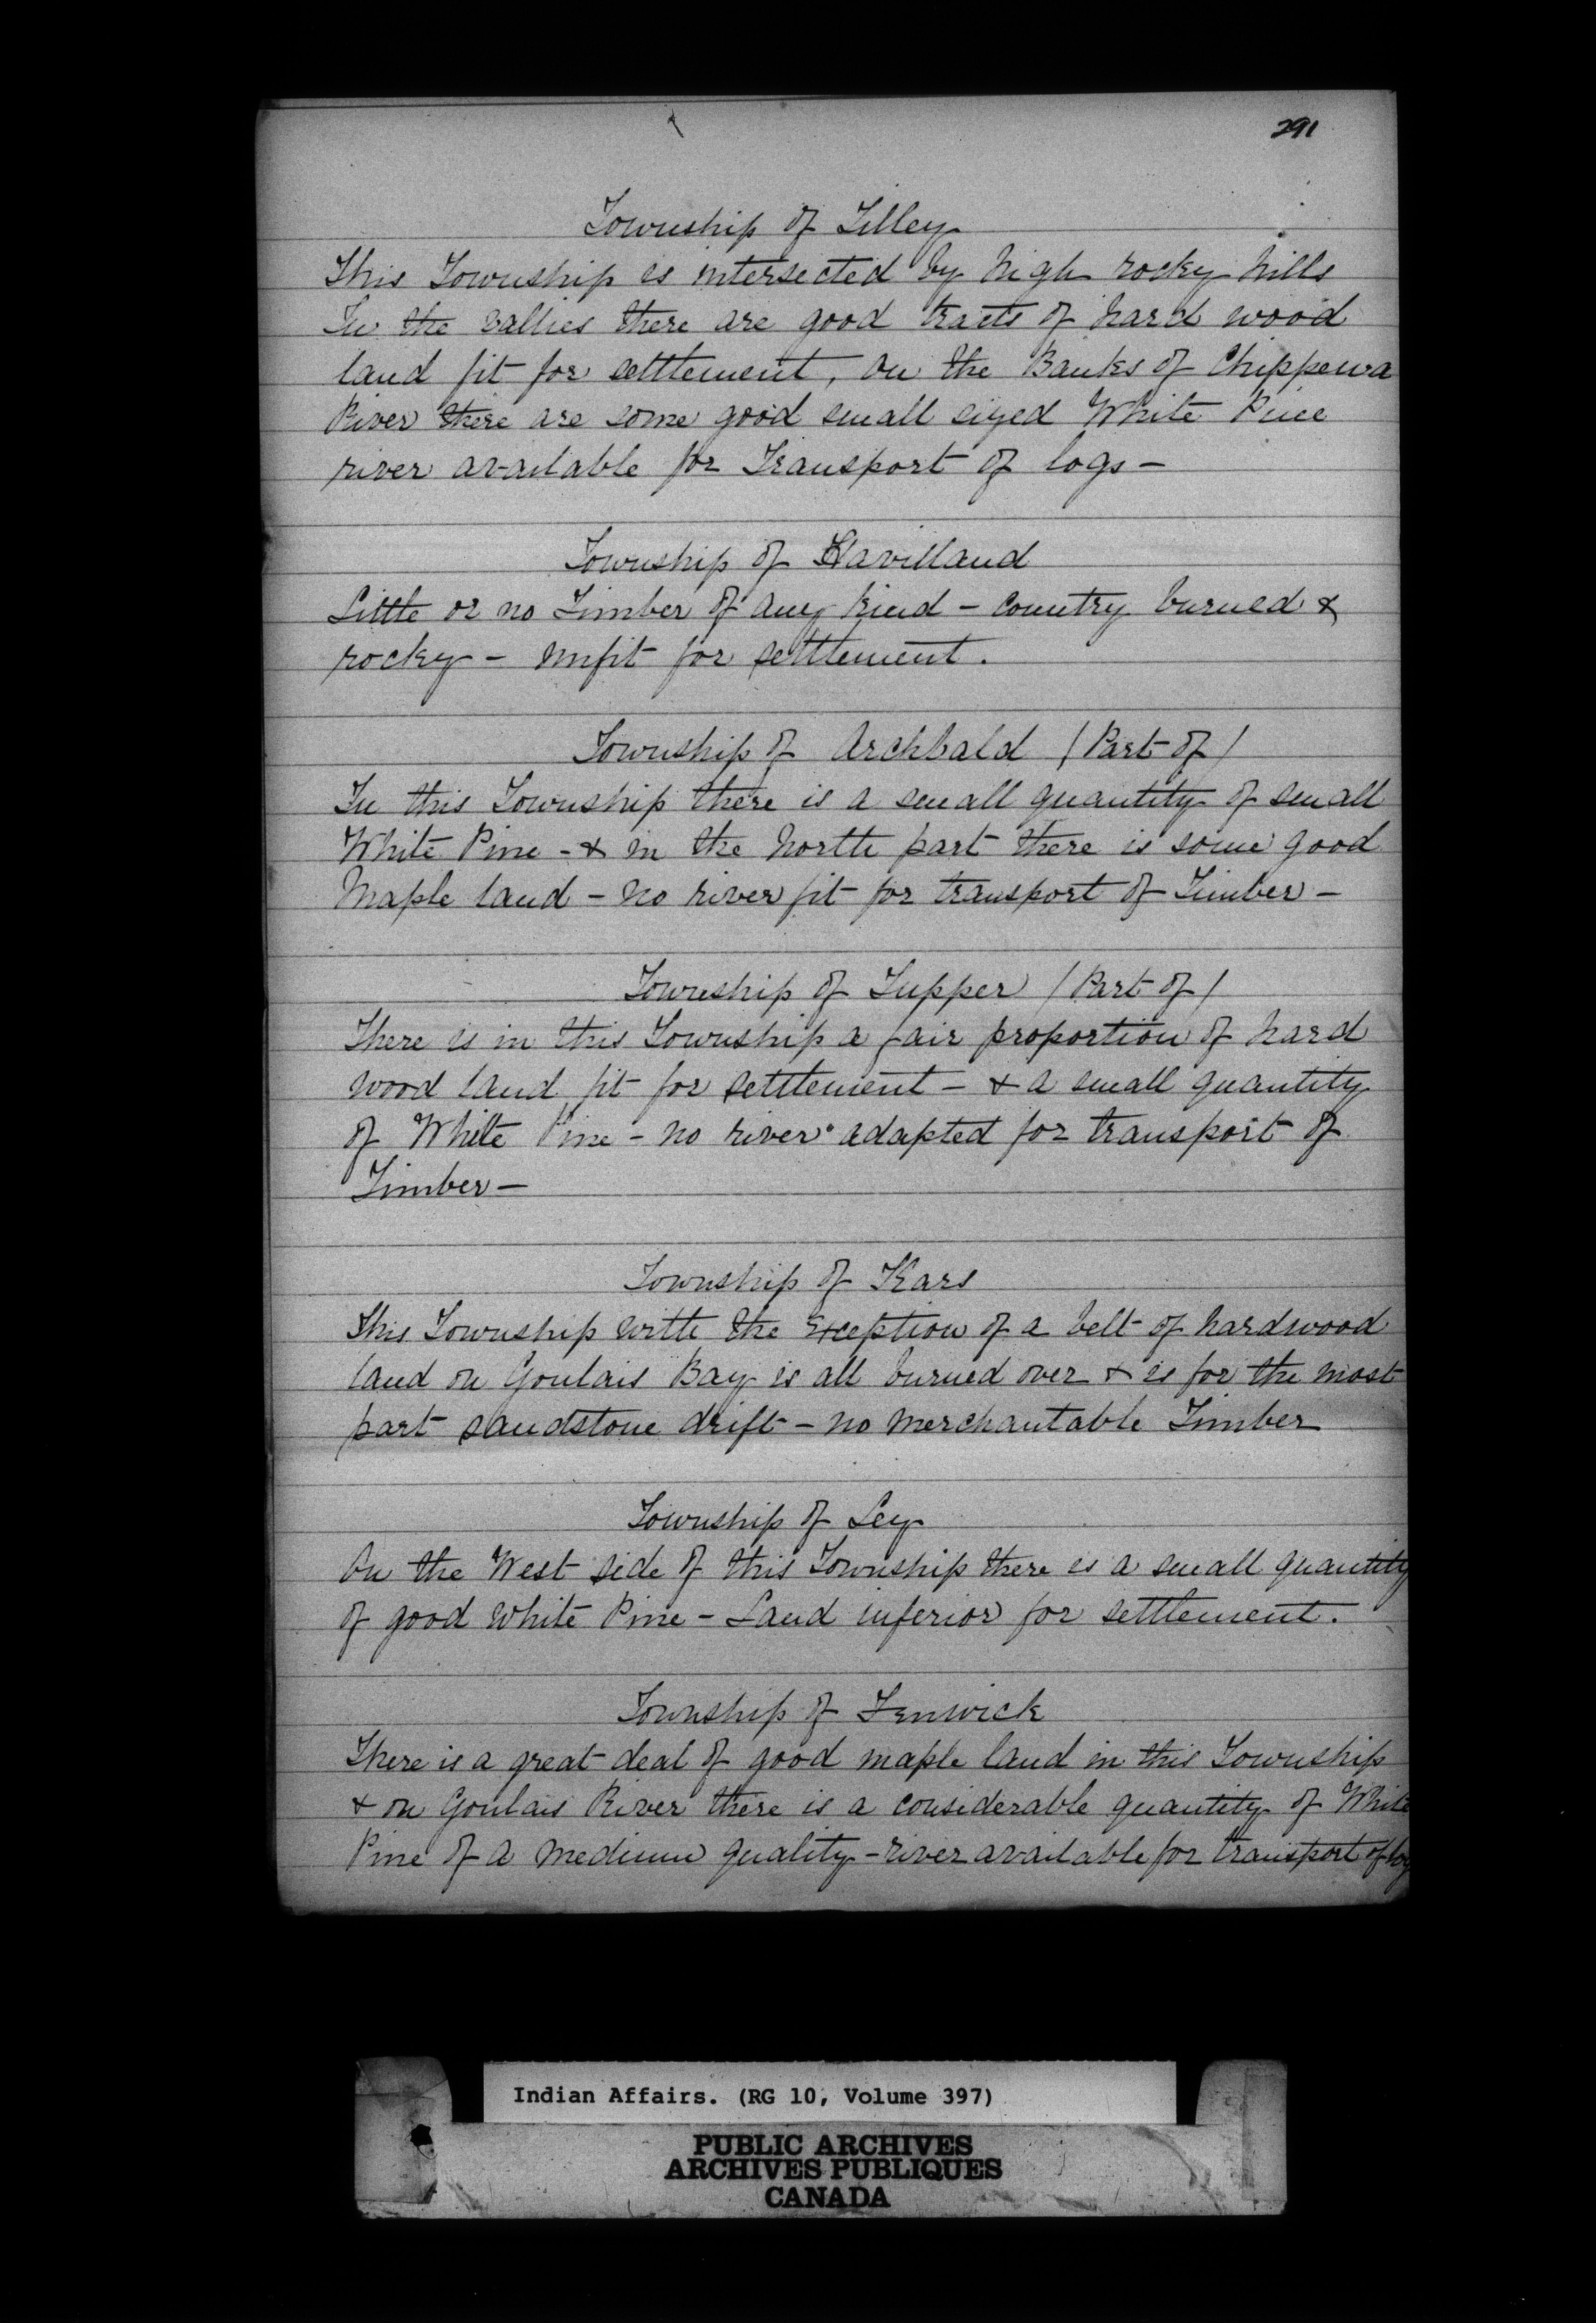 291
Township of Tilley
This Township is intersected by high rocky hills
In the vallies there are good tracts of hard wood
land fit for settlement, On the Banks of Chippewa
River there are some good small sized White Pine
river available for Transport of logs -
Township of Havilland
Little or no Timber of any kind - Country burned &
rocky - unfit for settlement.
Township of Archbald / Part of /
In this Township there is a small quantity of small
White Pine - & in the North part there is some good
Maple land - no river fit for transport of Timber -
Township of Tupper / Part of /
There is in this Township a fair proportion of hard
wood land fit for settlement - & a small quantity
of White Pine - no river adapted for transport of
Timber -
Township of Kars
This Township with the Exception of a belt of hardwood
land on Goulais Bay is all burned over & is for the most
part sandstone drift - no Merchantable Timber
Township of Ley
On the West side of this Township there is a small quantity
of good White Pine - Land inferior for settlement.
Township of Fenwick
There is a great deal of good maple land in this Township
& on Goulais River there is a considerable quantity of White
Pine of a Medium quality - river available for transport of log
Indian Affairs. (RG 10, Volume 397)
PUBLIC ARCHIVES
ARCHIVES PUBLIQUES
CANADA